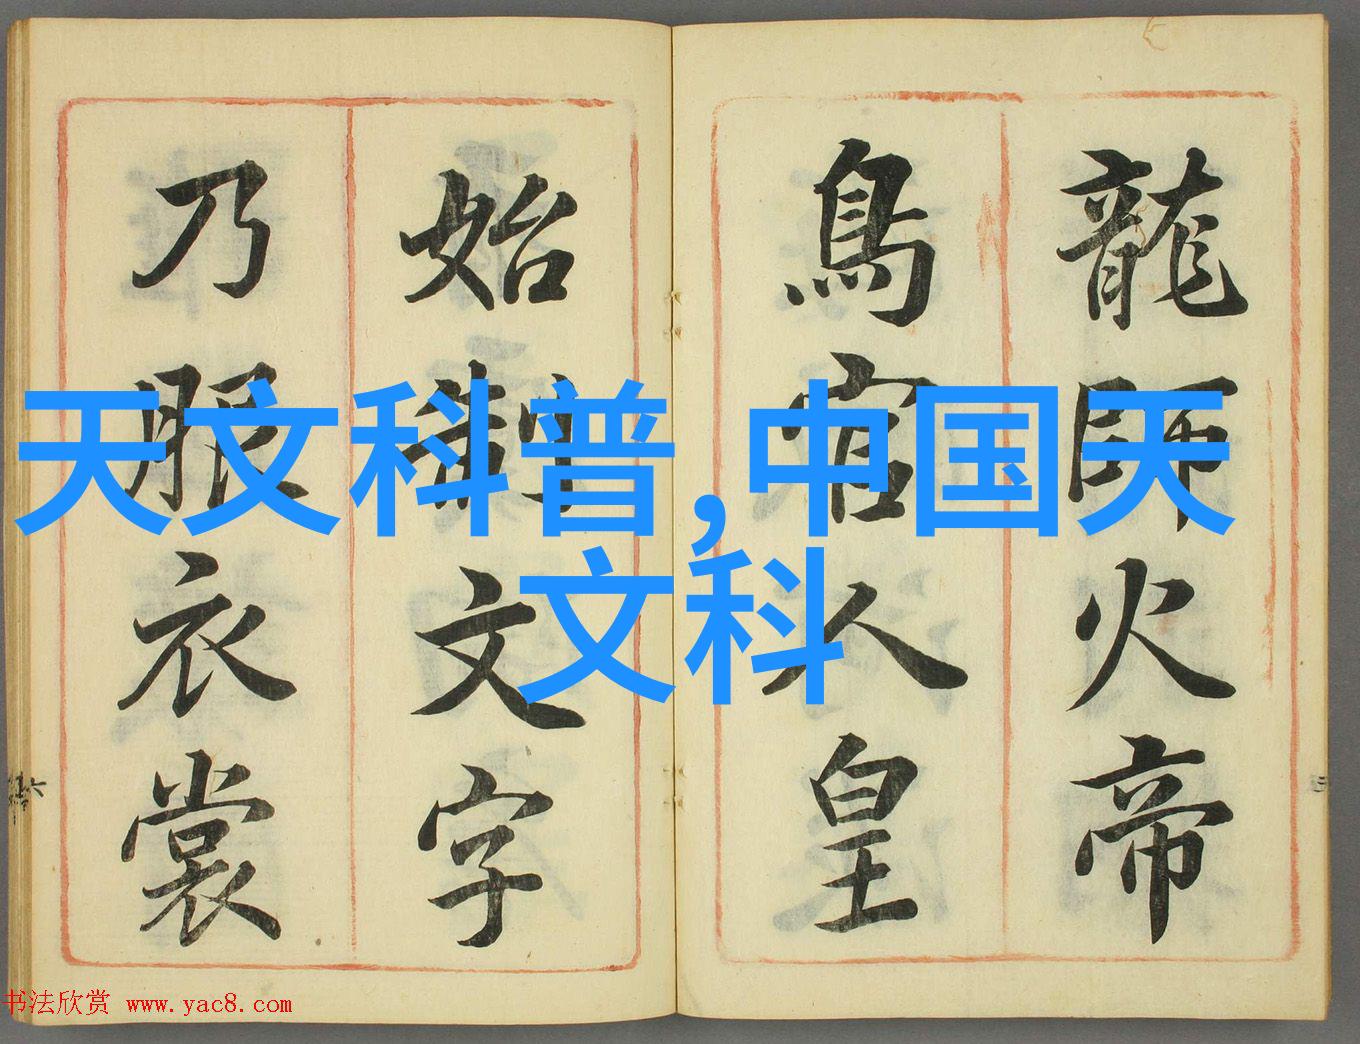 龍師火帝
鳥官人皇
始制文字
乃服衣裳
天文科普,中国天
文科
书法欣赏 www.yac8.com